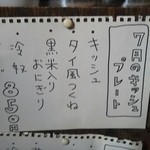 7月のキッシュ
プレート
キッシュ
タイ風つくね
黒米入り
おにぎり
850円